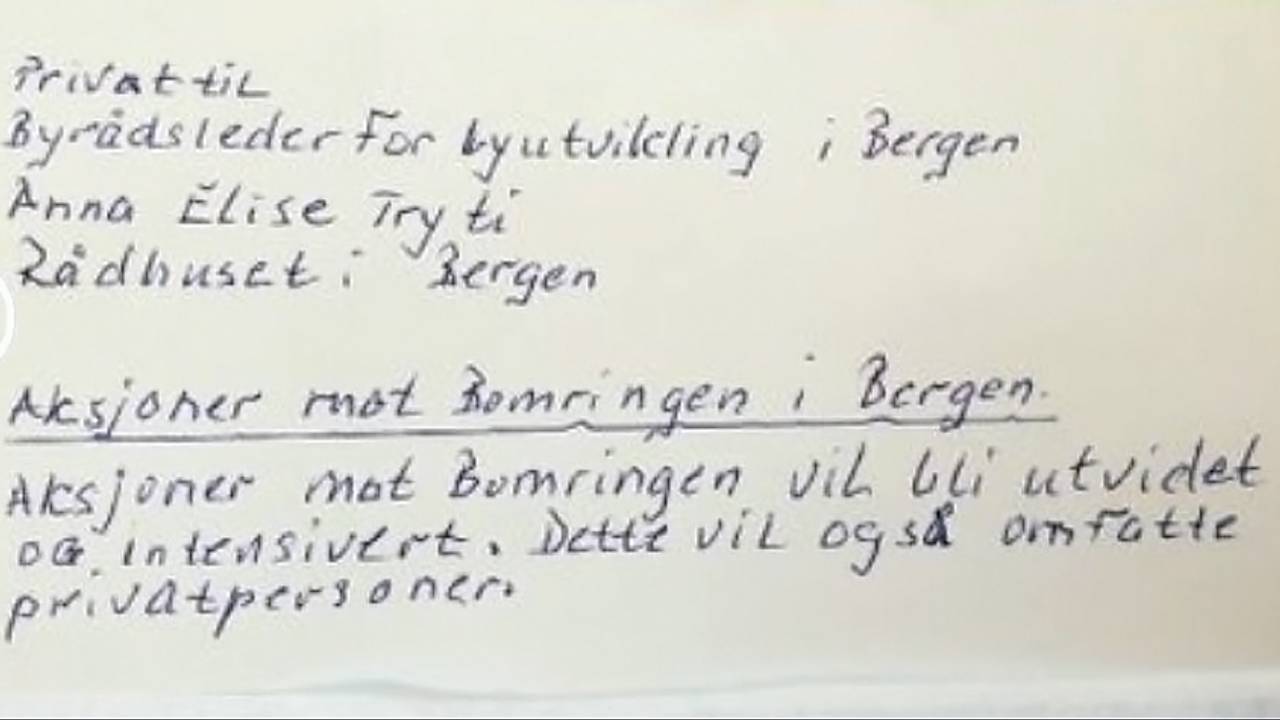 Privat til
Byrådsleder For byutvikling i Bergen
Anna Elise Tryti
Rådhuset i Bergen
Aksjoner mot Bomringen i Bergen.
Aksjoner mot Bomringen vil bli utvidet
og intensivert. Dette vil også omfatte
privatpersoner.